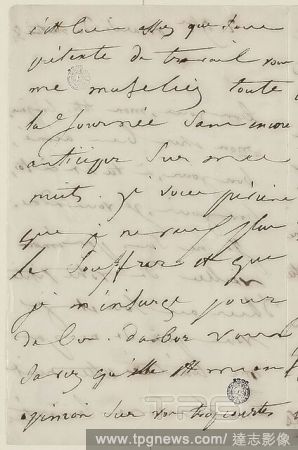 c'est bien assez que d'une
pétente de travail vous
me museliez toute
la journée sans encore
anticiper sur mes
nuits. je vous préviens
que je ne veux plus
le souffrir et que
je m'insurge pour
de bon. d'abord vous
savez qu'elle est mon
opinion sur vos trop courtes
TPG
www.tpgnews.com/達志影像